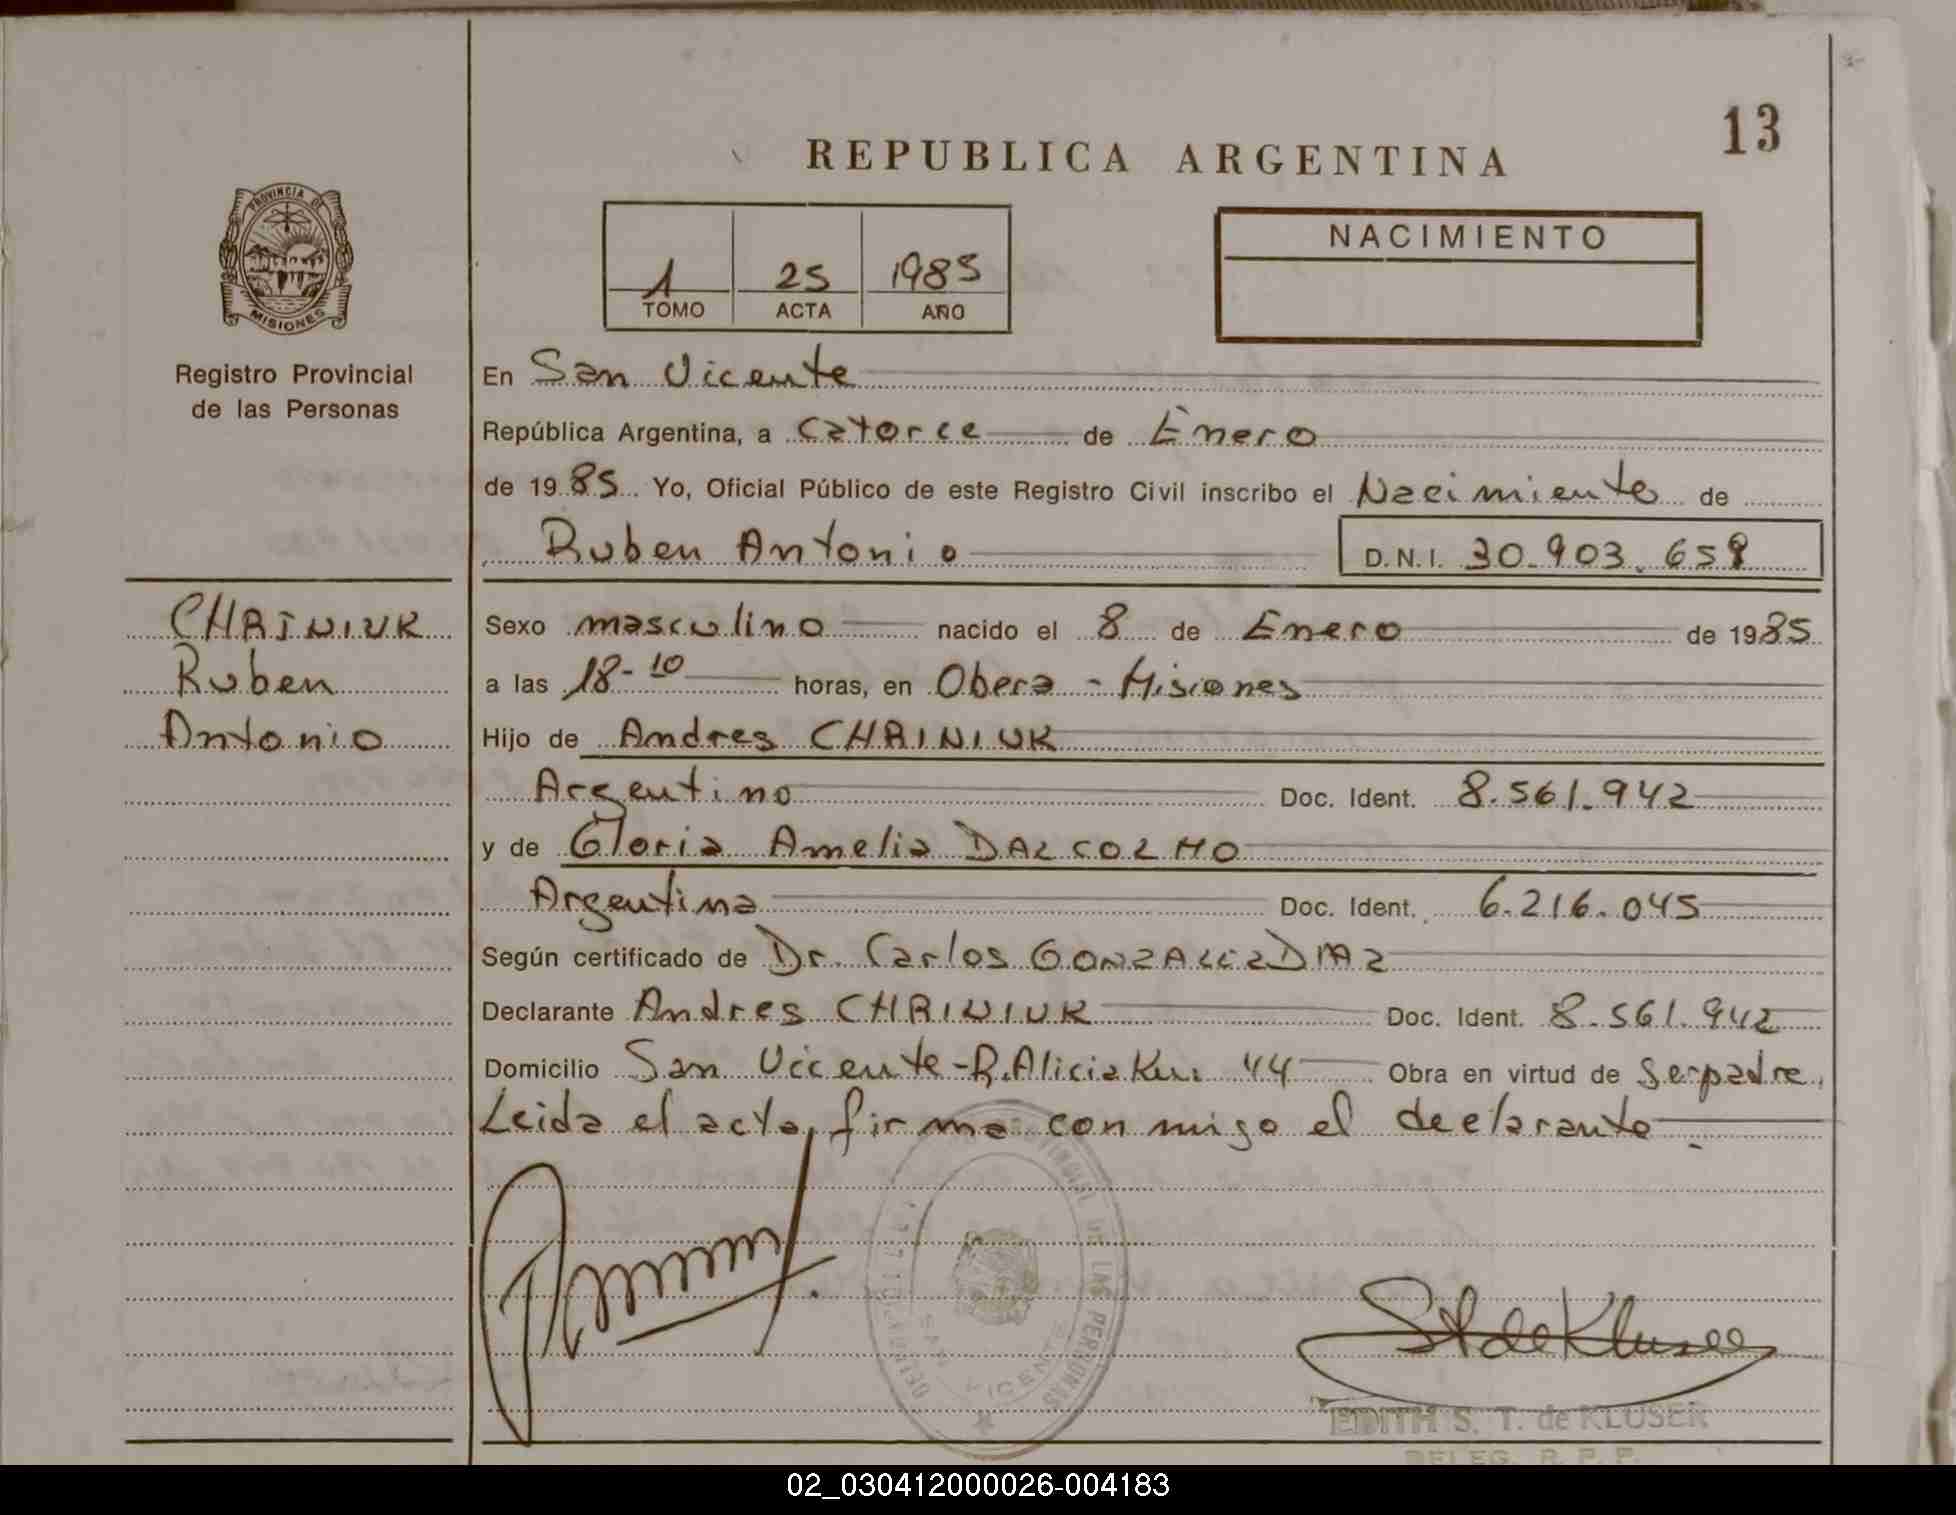 13
REPUBLICA ARGENTINA
PROVINCIA DE
MISIONES
Registro Provincial
de las Personas
1 25 1985
TOMO ACTA AÑO
NACIMIENTO
En San Vicente
República Argentina, a Catorce de Enero
de 1985 Yo, Oficial Público de este Registro Civil inscribo el Nacimiento de
Ruben Antonio D.N.I. 30.903.659
CHAINIUK
Ruben
Antonio
Sexo masculino nacido el 8 de Enero de 1985
a las 18-10 horas, en Obera - Misiones
Hijo de Andres CHAINIUK
Argentino Doc. Ident. 8.561.942
y de Gloria Amelia DALCOLMO
Argentina Doc. Ident. 6.216.045
Según certificado de Dr. Carlos GONZALEZ DIAZ
Declarante Andres CHAINIUK Doc. Ident. 8.561.942
Domicilio San Vicente - P. Alicia Km: 44 Obra en virtud de Ser padre,
Leida el acta, firma con migo el declarante.
DE LAS PERSONAS
SAN VICENTE
EDITH S. T. de KLUSER
DELEG. R. P. P.
02_030412000026-004183